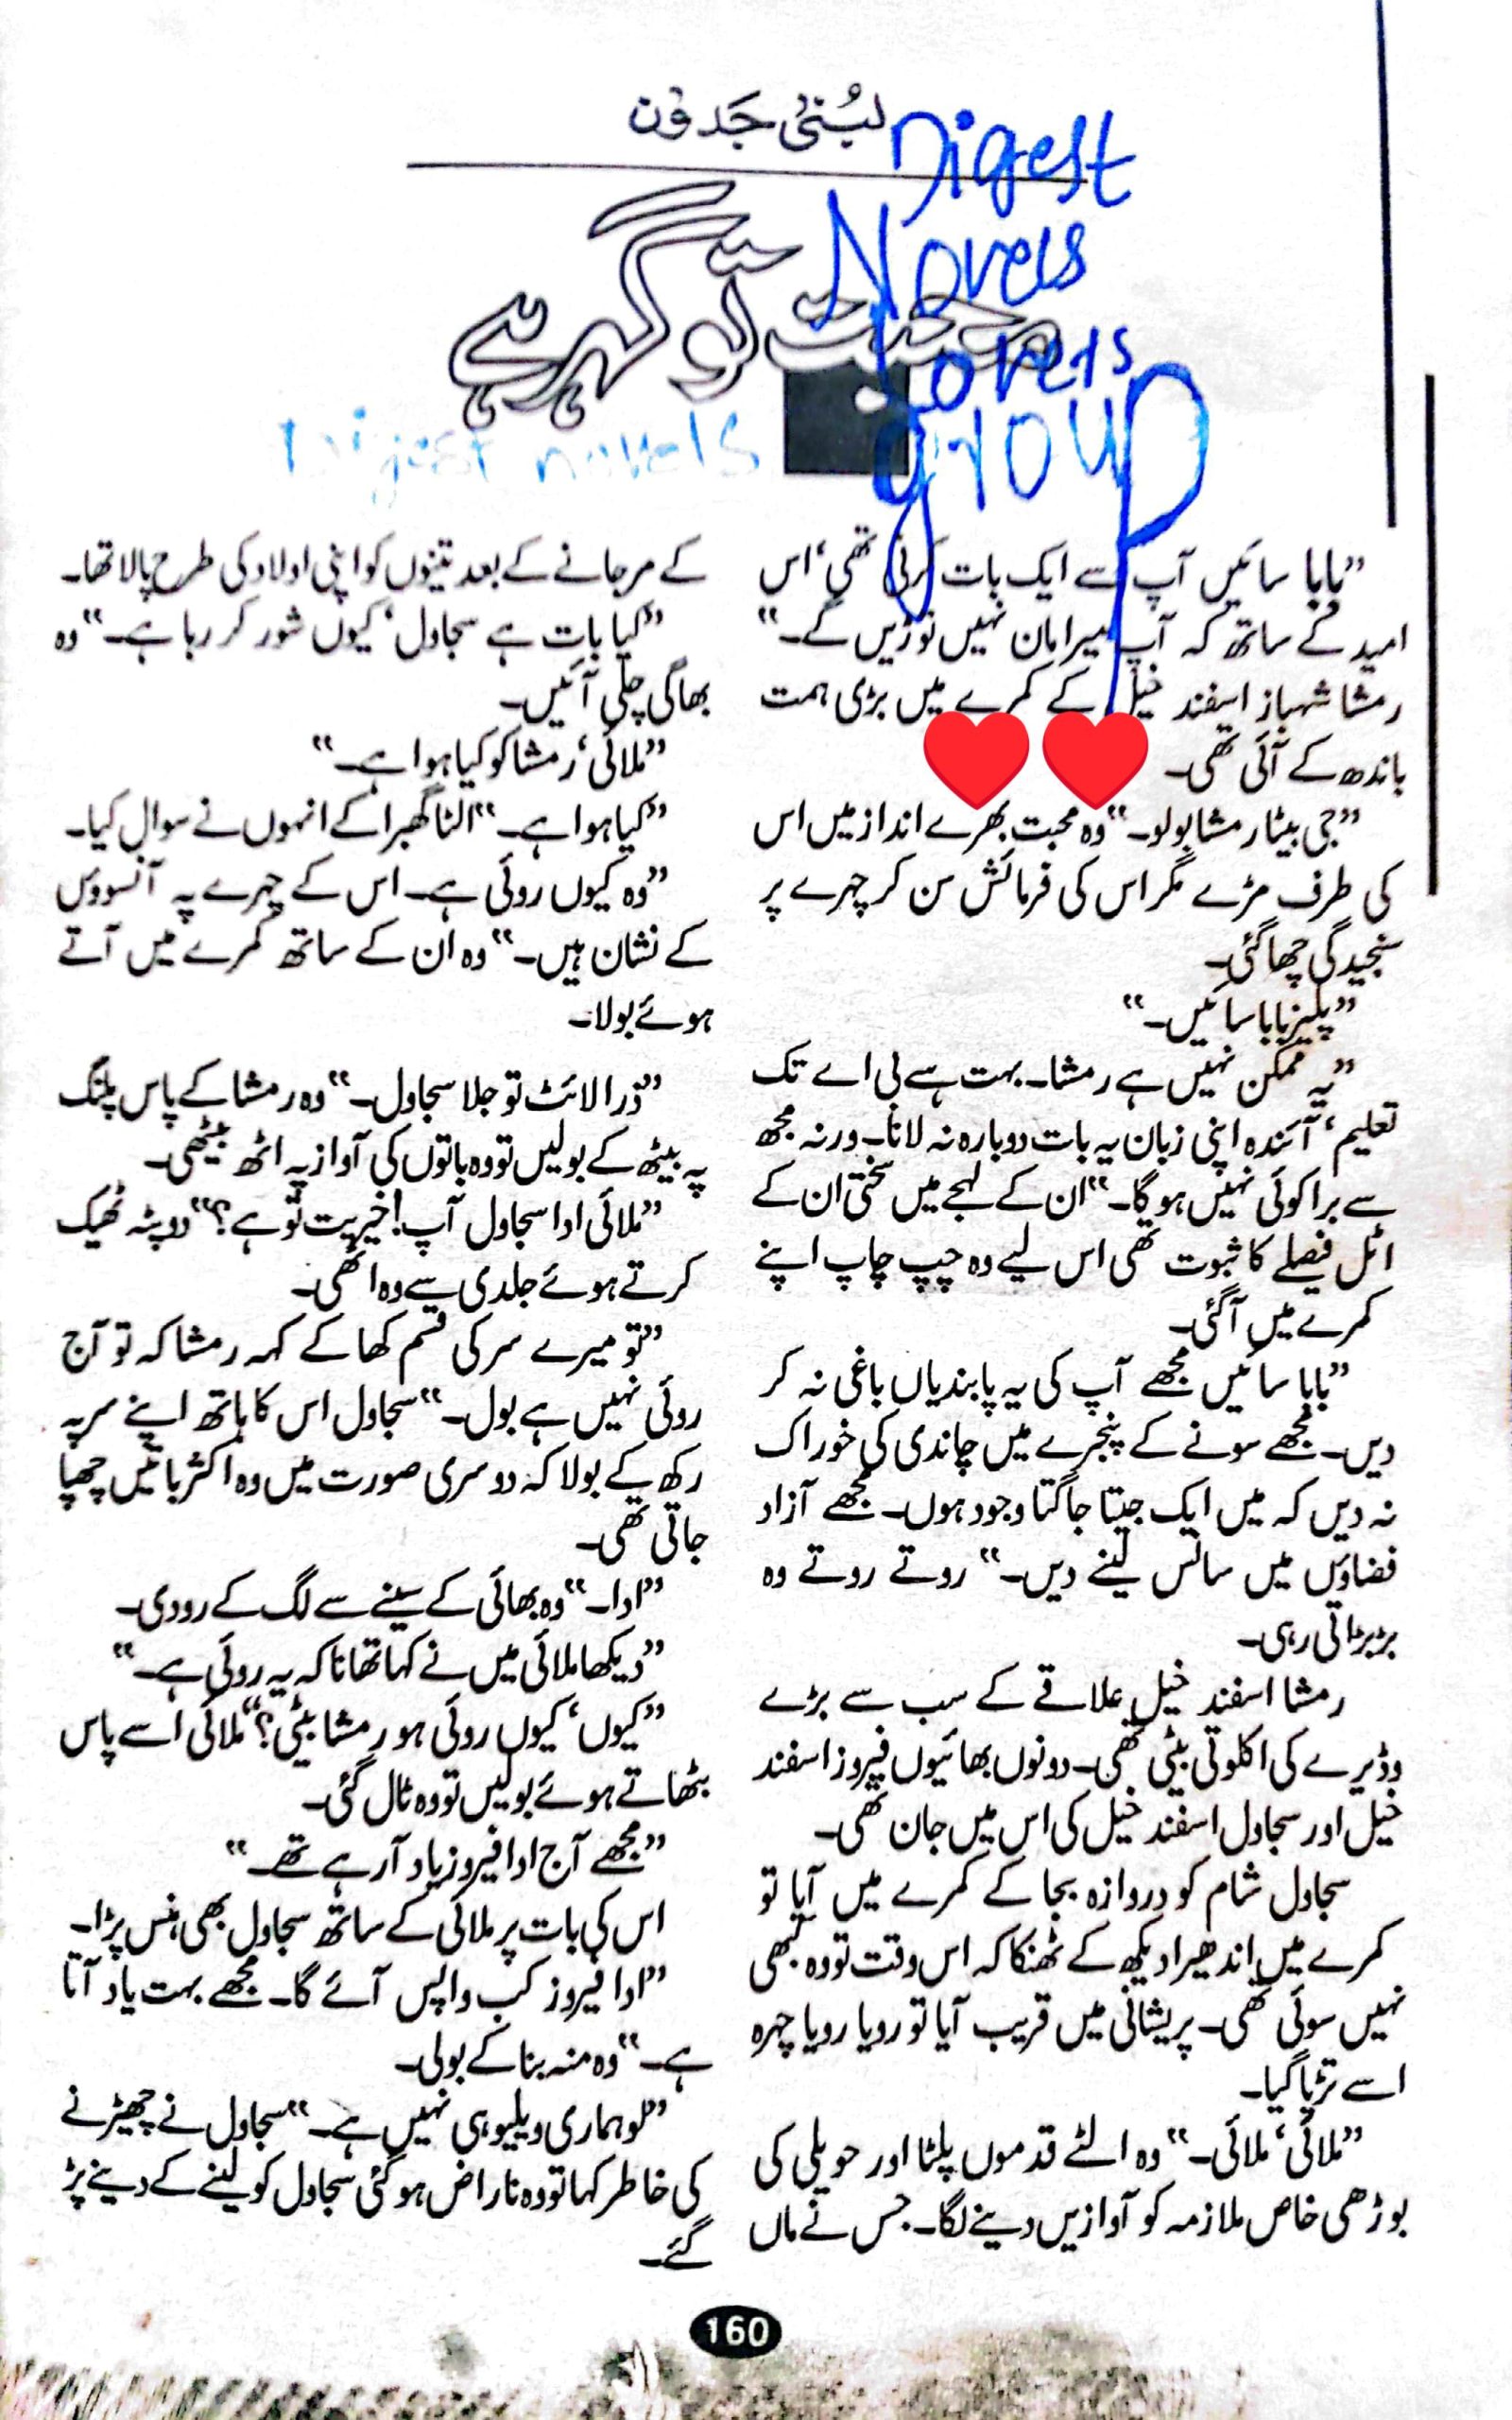 لبنیٰ جدون
محبت تو گہر ہے
Digest
Novels
Lovers
group
Digest novels
”بابا سائیں آپ سے ایک بات کرنی تھی‘ اس
امید کے ساتھ کہ آپ میرا مان نہیں توڑیں گے۔“
رمشا شہباز اسفند خیل کے کمرے میں بڑی ہمت
باندھ کے آئی تھی۔
”جی بیٹا رمشا بولو۔“ وہ محبت بھرے انداز میں اس
کی طرف مڑے مگر اس کی فرمائش سن کر چہرے پر
سنجیدگی چھا گئی۔
”پلیز بابا سائیں۔“
”یہ ممکن نہیں ہے رمشا۔ بہت ہے بی اے تک
تعلیم‘ آئندہ اپنی زبان پہ یہ بات دوبارہ نہ لانا۔ ورنہ مجھ
سے برا کوئی نہیں ہو گا۔“ ان کے لہجے میں سختی ان کے
اٹل فیصلے کا ثبوت تھی اس لیے وہ چپ چاپ اپنے
کمرے میں آگئی۔
”بابا سائیں مجھے آپ کی یہ پابندیاں باغی نہ کر
دیں۔ مجھے سونے کے پنجرے میں چاندی کی خوراک
نہ دیں کہ میں ایک جیتا جاگتا وجود ہوں۔ مجھے آزاد
فضاؤں میں سانس لینے دیں۔“ روتے روتے وہ
بڑبڑاتی رہی۔
رمشا اسفند خیل علاقے کے سب سے بڑے
وڈیرے کی اکلوتی بیٹی تھی۔ دونوں بھائیوں فیروز اسفند
خیل اور سجاول اسفند خیل کی اس میں جان تھی۔
سجاول شام کو دروازہ بجا کے کمرے میں آیا تو
کمرے میں اندھیرا دیکھ کے ٹھنکا کہ اس وقت تو وہ کبھی
نہیں سوئی تھی۔ پریشانی میں قریب آیا تو رویا رویا چہرہ
اسے تڑپا گیا۔
”ملائی‘ ملائی۔“ وہ الٹے قدموں پلٹا اور حویلی کی
بوڑھی خاص ملازمہ کو آوازیں دینے لگا۔ جس نے ماں
کے مر جانے کے بعد تینوں کو اپنی اولاد کی طرح پالا تھا۔
”کیا بات ہے سجاول‘ کیوں شور کر رہا ہے۔“ وہ
بھاگی چلی آئیں۔
”ملائی‘ رمشا کو کیا ہوا ہے۔“
”کیا ہوا ہے۔“ الٹا گھبرا کے انہوں نے سوال کیا۔
”وہ کیوں روئی ہے۔ اس کے چہرے پہ آنسوؤں
کے نشان ہیں۔“ وہ ان کے ساتھ کمرے میں آتے
ہوئے بولا۔
”ذرا لائٹ تو جلا سجاول۔“ وہ رمشا کے پاس پلنگ
پہ بیٹھ کے بولیں تو وہ باتوں کی آواز پہ اٹھ بیٹھی۔
”ملائی ادا سجاول آپ! خیریت تو ہے؟“ دوپٹہ ٹھیک
کرتے ہوئے جلدی سے وہ اٹھی۔
”تو میرے سر کی قسم کھا کے کہہ رمشا کہ تو آج
روئی نہیں ہے بول۔“ سجاول اس کا ہاتھ اپنے سر پہ
رکھ کے بولا کہ دوسری صورت میں وہ اکثر باتیں چھپا
جاتی تھی۔
”ادا۔“ وہ بھائی کے سینے سے لگ کے رو دی۔
”دیکھا ملائی میں نے کہا تھا نا کہ یہ روئی ہے۔“
”کیوں‘ کیوں روئی ہو رمشا بیٹی؟“ ملائی اسے پاس
بٹھاتے ہوئے بولیں تو وہ ٹال گئی۔
”مجھے آج ادا فیروز یاد آ رہے تھے۔“
اس کی بات پر ملائی کے ساتھ سجاول بھی ہنس پڑا۔
”ادا فیروز کب واپس آئے گا۔ مجھے بہت یاد آتا
ہے۔“ وہ منہ بنا کے بولی۔
”لو ہماری ویلیو ہی نہیں ہے۔“ سجاول نے چھیڑنے
کی خاطر کہا تو وہ ناراض ہو گئی سجاول کو لینے کے دینے پڑ
گئے۔
160